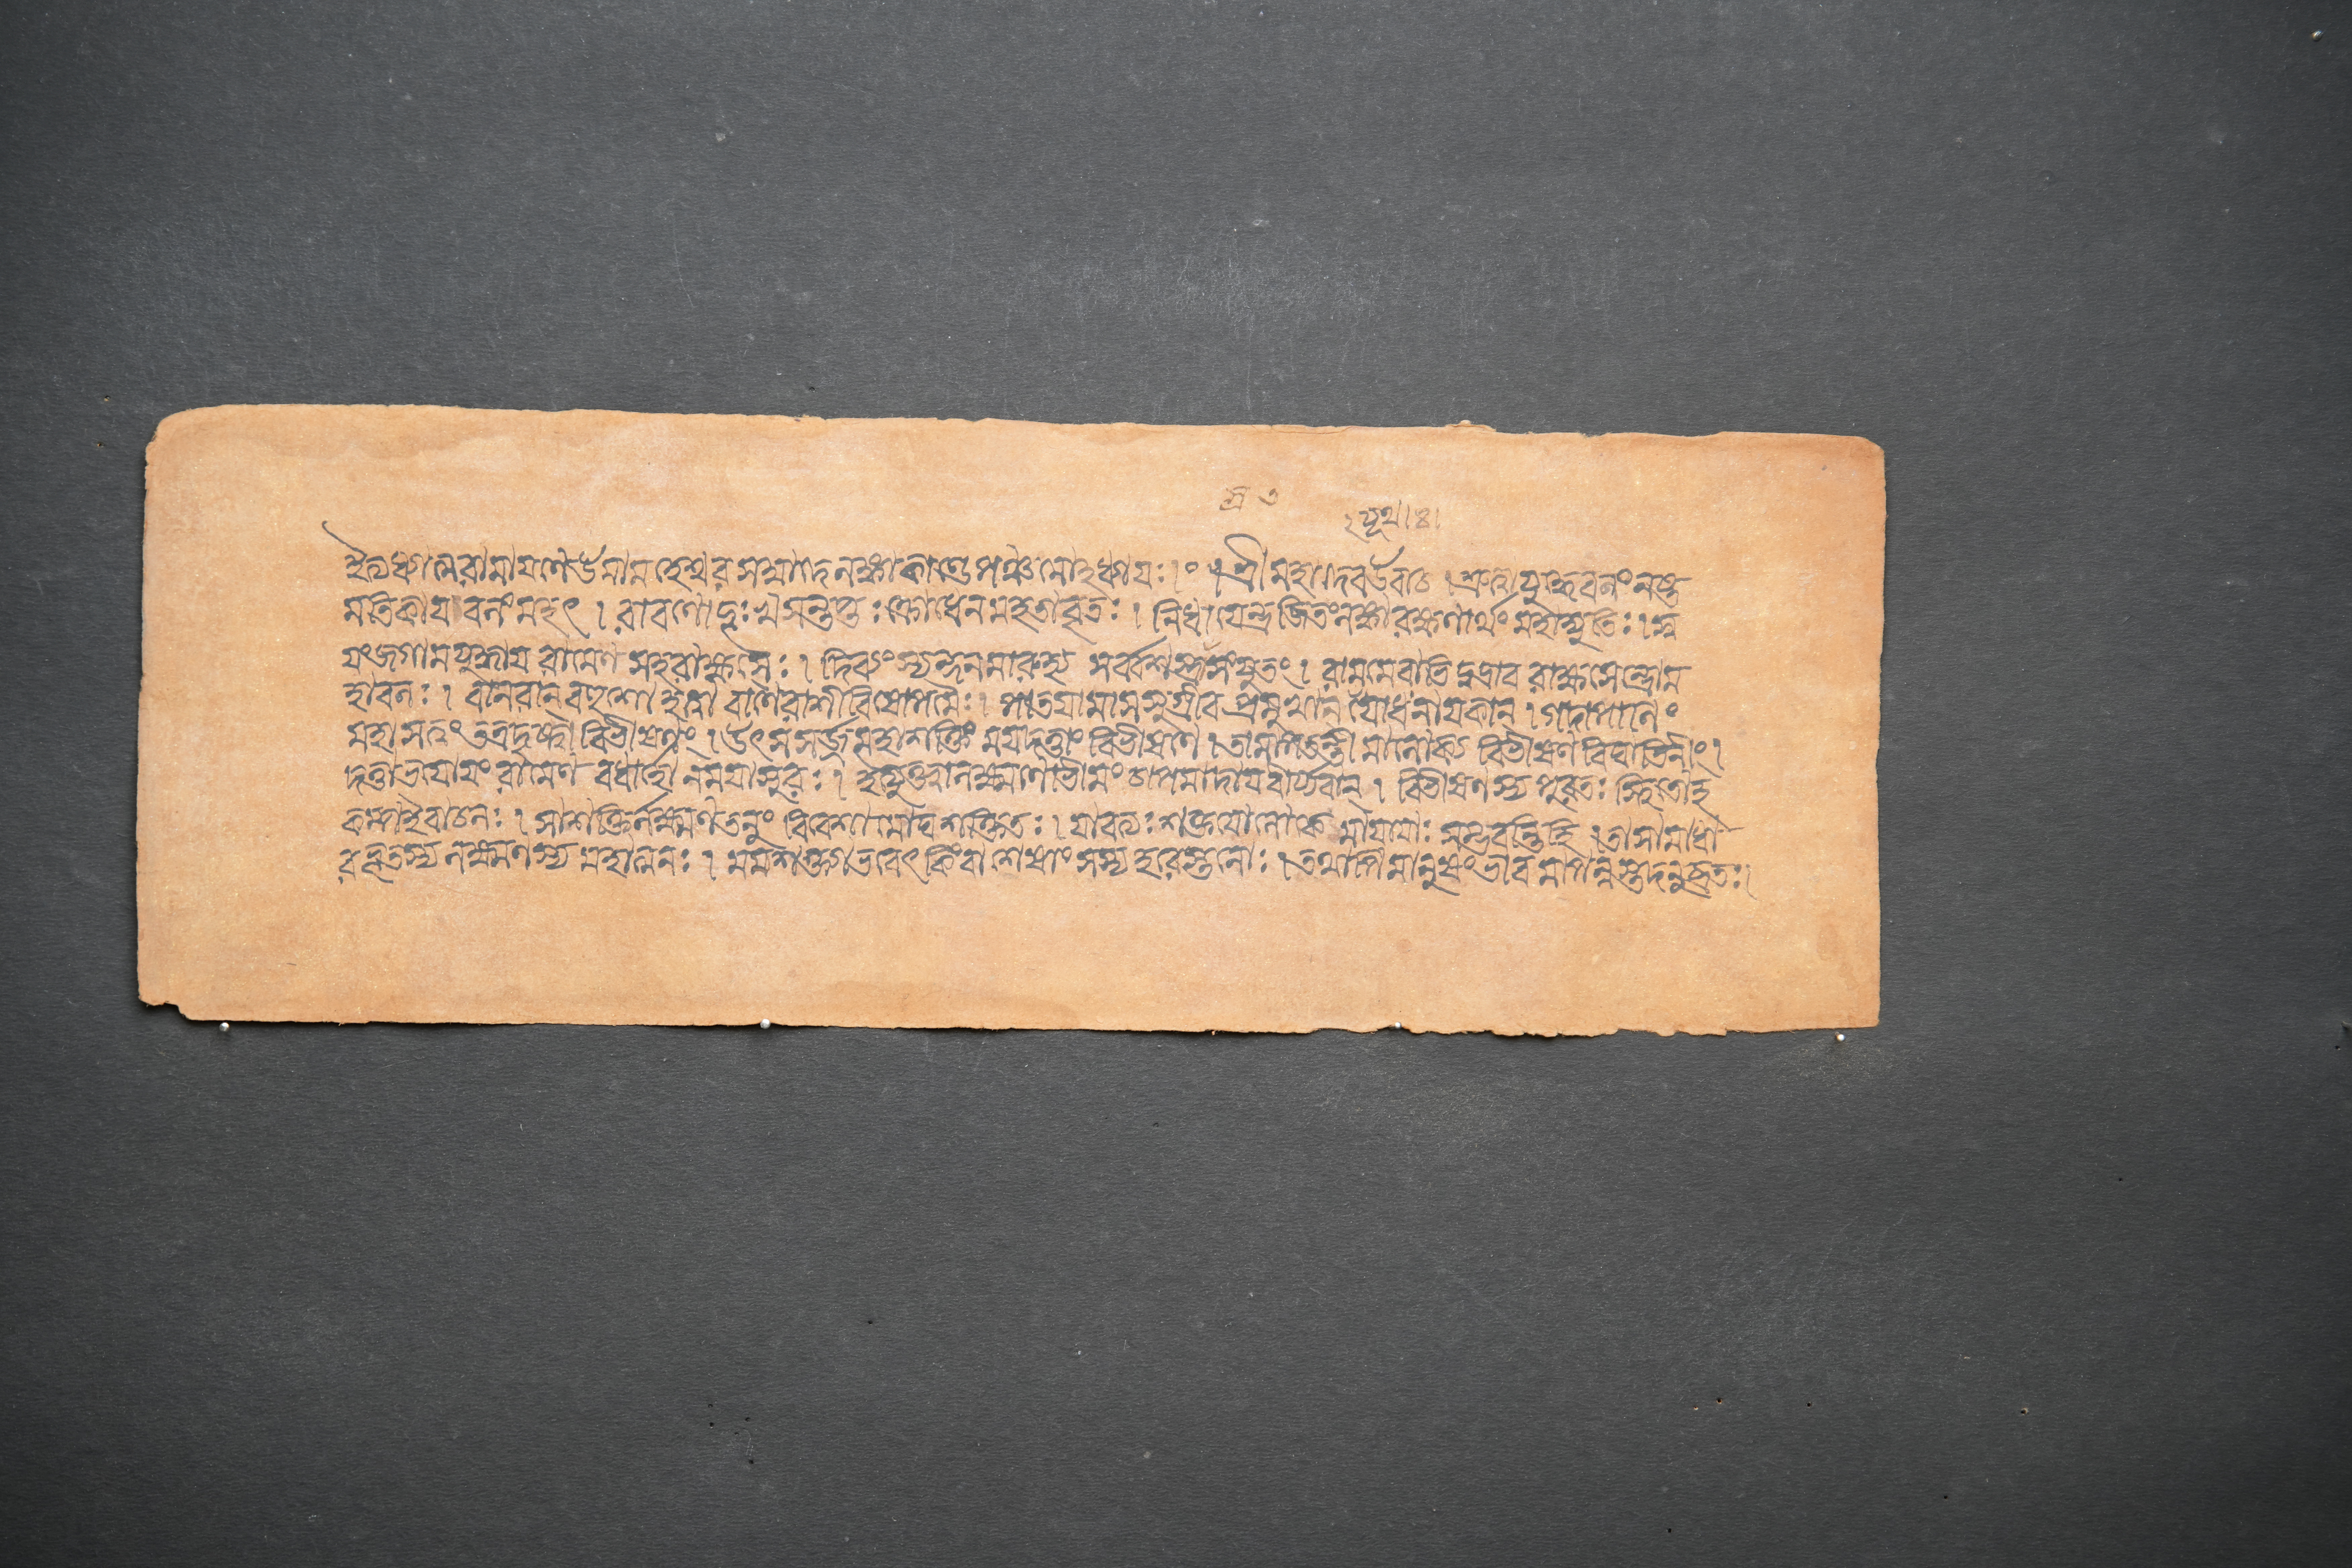 ইত্যধ্যাত্মরামাযণেউমামহেশ্বরসম্বাদেলঙ্কাকাণ্ডেপঞ্চমোহধ্যাযঃ।০ শ্রীমহাদেবউবাচ।শ্রুত্বাযুদ্ধেবলংনষ্ট
মতিকাযবলংমহৎ।রাবণোদুঃখসন্তপ্তঃক্রোধেনমহতাবৃতঃ।নিধাযেন্দ্রজিতংলঙ্কারক্ষণার্থংমহাদ্যুতিঃ।স্ব
যংজগামযুদ্ধায রামেণ সহরাক্ষসৈঃ।দিব্যংস্যন্দনমারুহ্য সর্ব্বশস্ত্রাস্ত্রসংযুতং।রামমেবাভিদুদ্রাব রাক্ষসেন্দ্রোম
হাবলঃ।বানরান্বহুশোহত্বা বাণৈরাশীবিষোপমৈঃ।পাতযামাসসুগ্রীবপ্রমুখান্ যোধনাযকান্।গদাপাণিং
মহাসত্বংতত্রদৃষ্ট্বাবিভীষণং।উৎসসর্জ্জমহাশক্তিং মযদত্তাংবিভীষণে।তামাপতন্তীমালোক্য বিভীষণবিঘাতিনীং।
দত্তাভযোযংরামেণ বধার্হোনমযাসুরঃ।ইত্যুক্ত্বালক্ষ্মণোভীমংচাপমাদাযবীর্য্যবান্।বিভীষণস্য পুরতঃ স্থিতোহ
কম্পইবাচলঃ।সাশক্তির্লক্ষ্মণতনুং বিবেশামোঘশক্তিতঃ।যাবত্যঃশক্তযোলোকে মাযাযাঃসম্ভবন্তিহি।তাসামাধা
রভূতস্য লক্ষ্মণস্য মহাত্মনঃ।মমশক্ত্যাভবেৎকিংবাশেষাংসস্য হরেস্তনোঃ।তথাপিমানুষংভাবমাপন্নস্তদনুব্রতঃ।